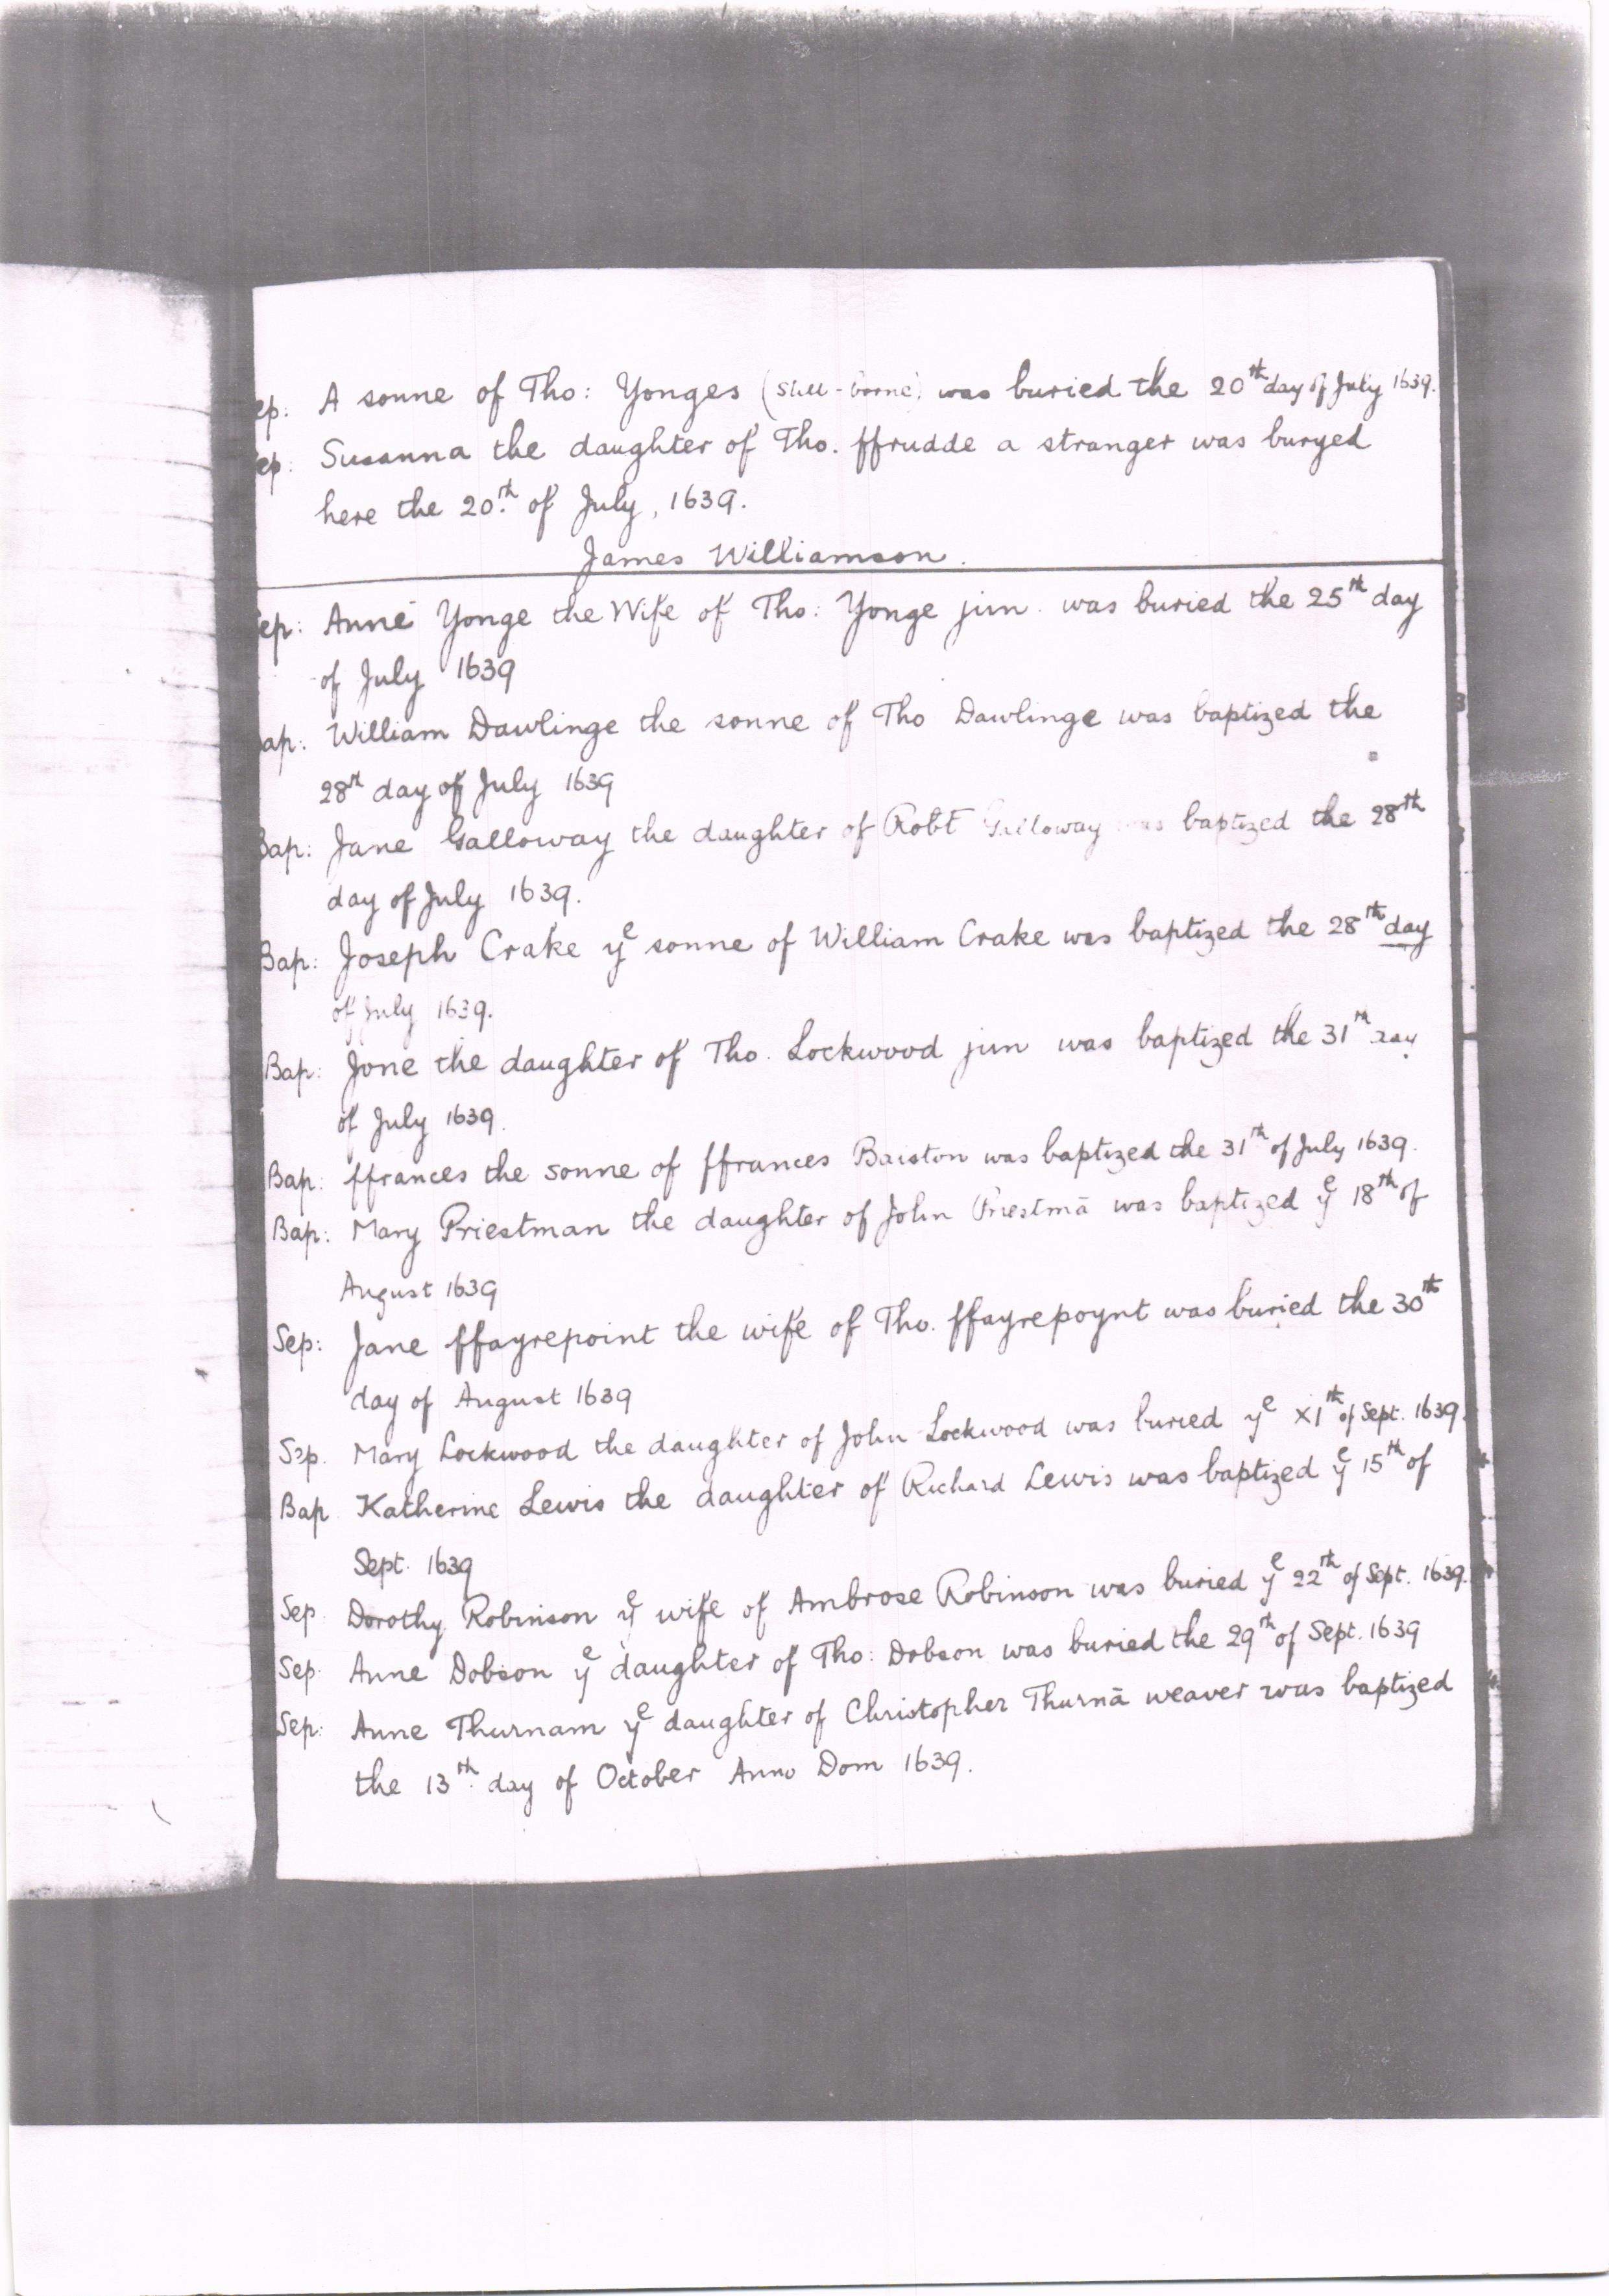 ep: A sonne of Tho: Yonges (still-borne) was buried the 20th day of July 1639.
ep: Susanna the daughter of Tho. ffrudde a stranger was buryed
here the 20th of July, 1639.
James Williamson.
ep: Anne Yonge the Wife of Tho: Yonge jun. was buried the 25th day
of July 1639
ap: William Dawlinge the sonne of Tho Dawlinge was baptized the
28th day of July 1639
Bap: Jane Galloway the daughter of Robt Galloway was baptized the 28th
day of July 1639.
Bap: Joseph Crake ye sonne of William Crake was baptized the 28th day
of July 1639.
Bap: Jone the daughter of Tho. Lockwood jun was baptized the 31th day
of July 1639.
Bap: ffrances the sonne of ffrances Baiston was baptized the 31th of July 1639.
Bap: Mary Priestman the daughter of John Priestmā was baptized ye 18th of
August 1639
Sep: Jane ffayrepoint the wife of Tho. ffayrepoynt was buried the 30th
day of August 1639
Sep. Mary Lockwood the daughter of John Lockwood was buried ye x1th of Sept. 1639.
Bap Katherine Lewis the daughter of Richard Lewis was baptized ye 15th of
Sept. 1639
Sep Dorothy Robinson ye wife of Ambrose Robinson was buried ye 22th of Sept. 1639.
Sep. Anne Dobson ye daughter of Tho: Dobson was buried the 29th of Sept. 1639
Sep: Anne Thurnam ye daughter of Christopher Thurnā weaver was baptized
the 13th day of October Anno Dom 1639.